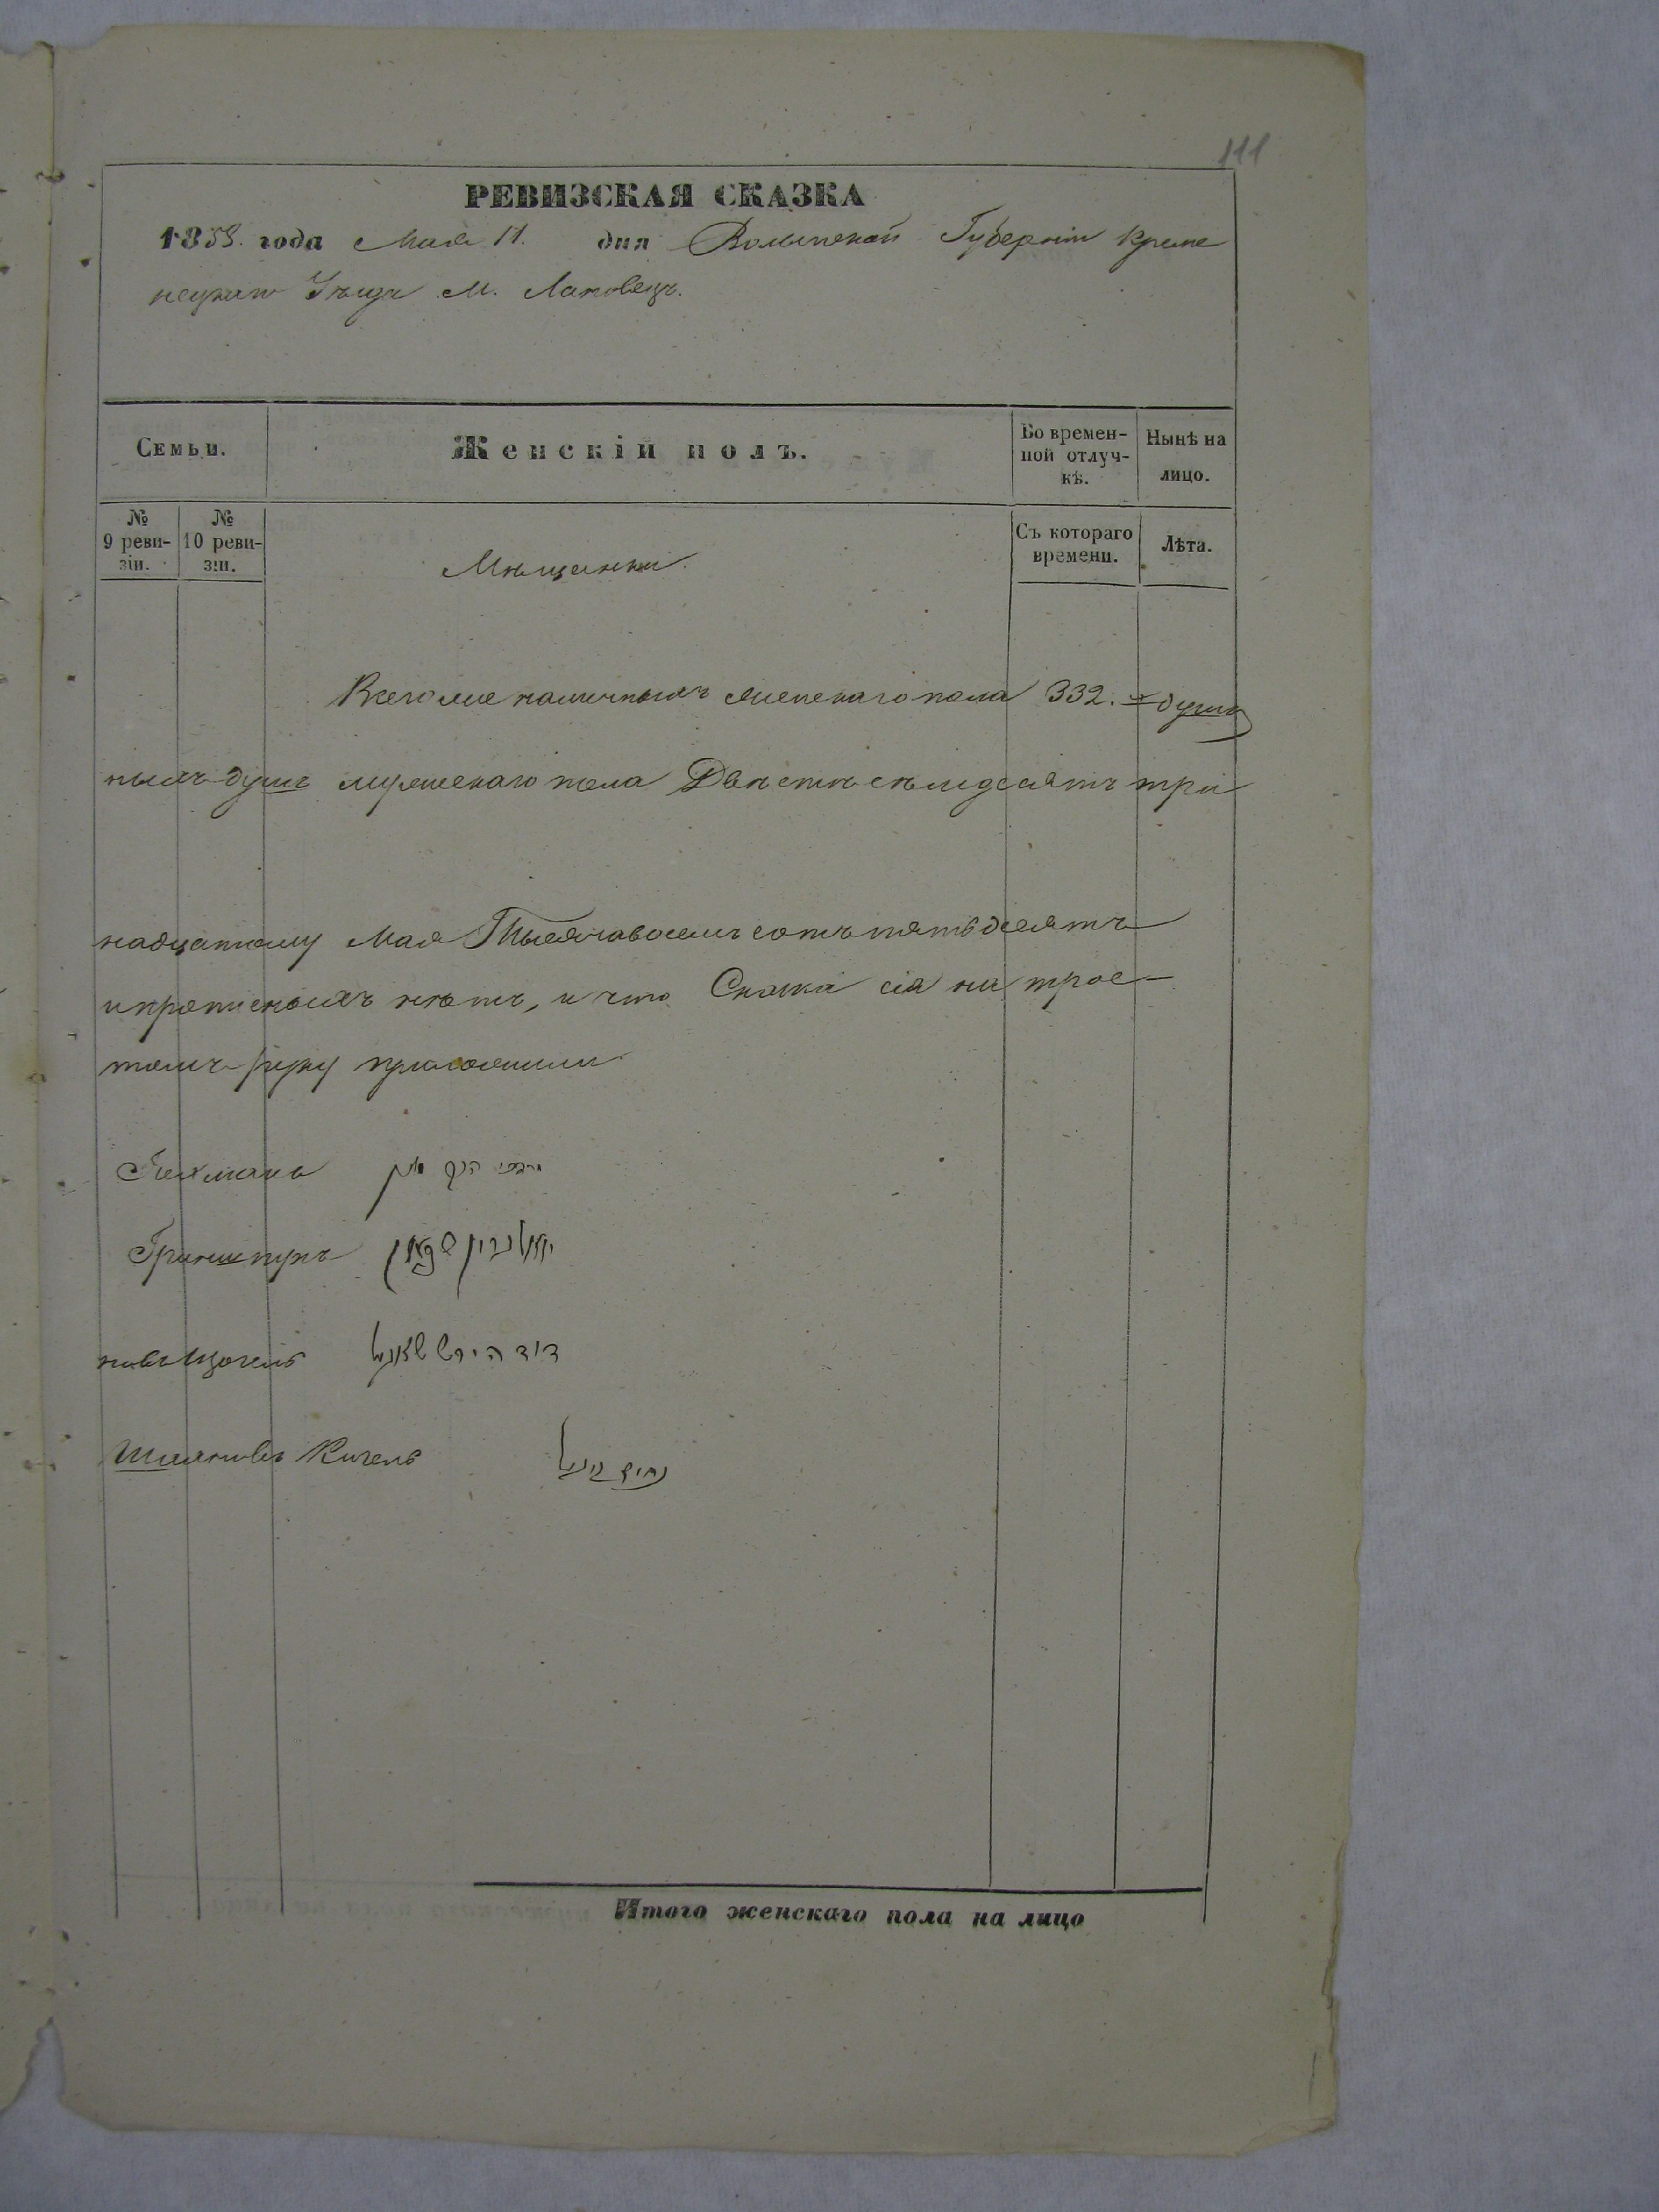 111
РЕВИЗСКАЯ СКАЗКА
1858. года Мая 11. дня Волынской Губерніи Креме
нецкаго Уѣзда М. Лановецъ.
Семьи.
Женскій полъ.
Во времен-
ной отлуч-
кѣ.
Нынѣ на
лицо.
№
9 реви-
зіи.
№
10 реви-
зіи.
Мѣщанки
Съ котораго
времени.
Лѣта.
Всего же наличныхъ женскаго пола 332. душъ
ныхъ душъ мужескаго пола Двѣстѣ семдесятъ три
надцатому Мая Тысяча восемь сотъ пятьдесятъ
и прописныхъ нѣтъ, и что Сказка сія на трое-
томъ руку приложили
Гринштукъ
דוד הירש
Шмяновъ Кигель
Итого женскаго пола на лицо